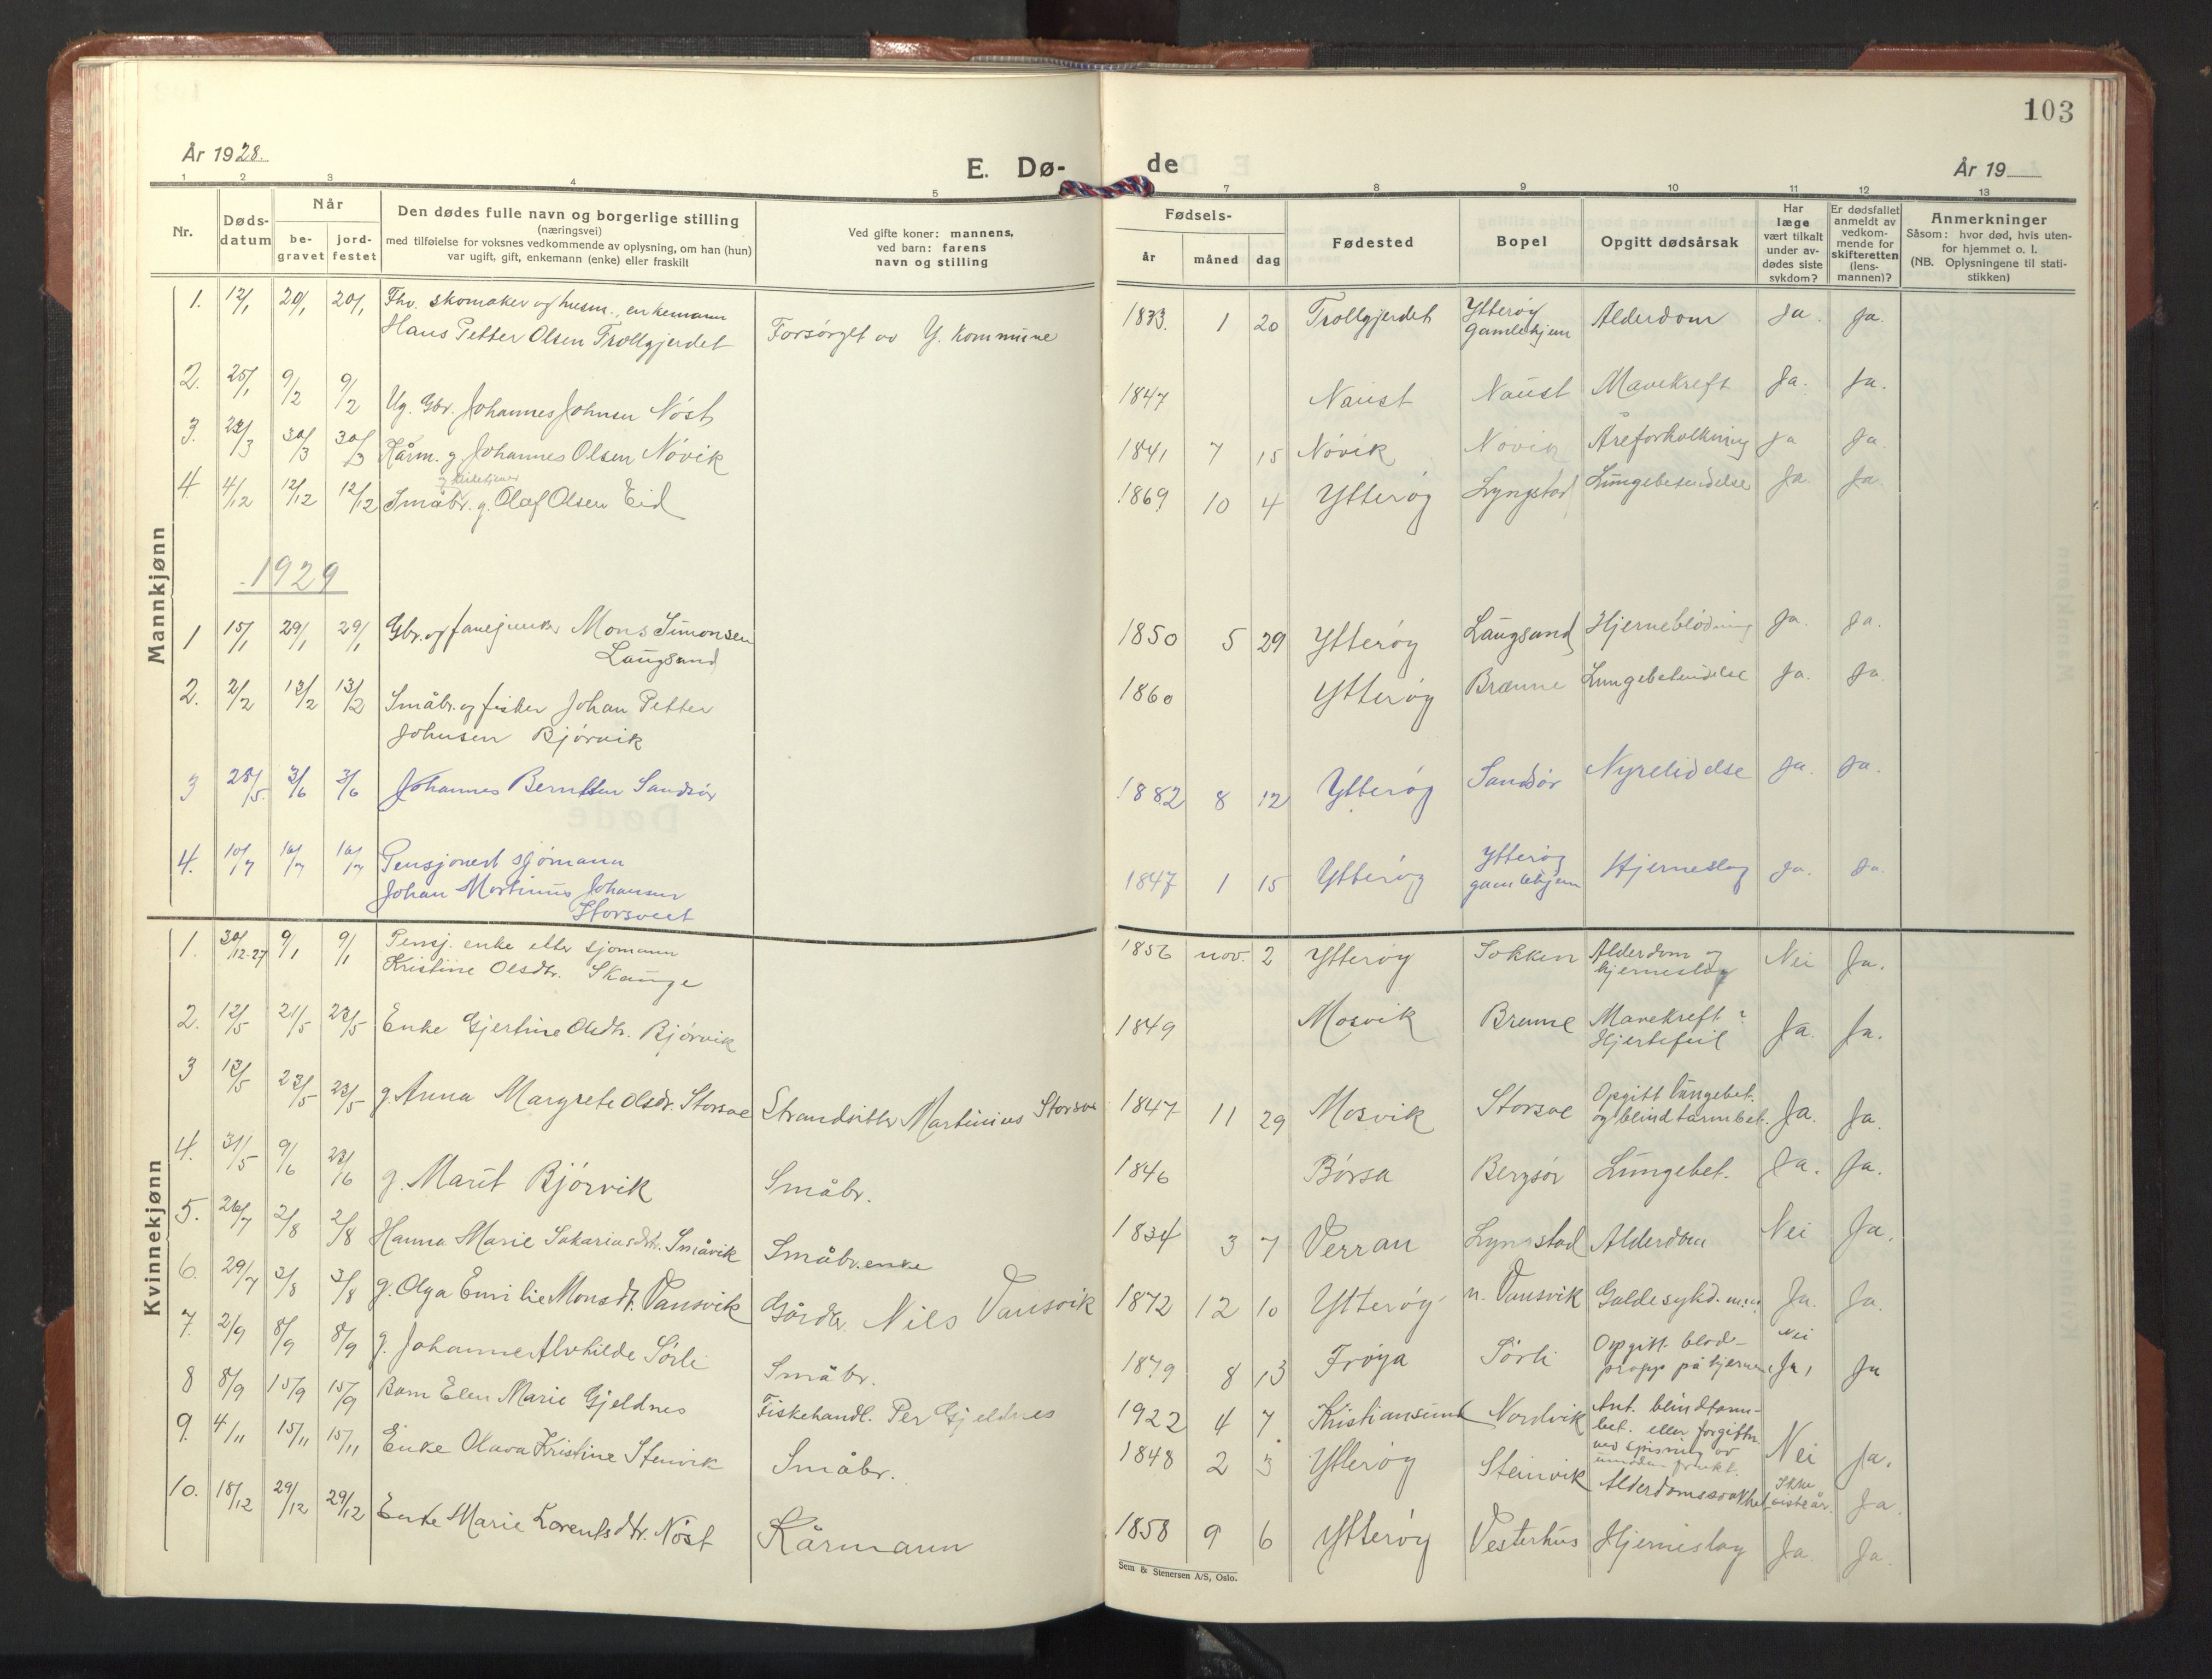 103
År 1928.
E. Dø-
de
År 19
1 2 3 4 5
7 8 9 10 11 12 13
Nr.
Døds-
datum
Når
be-
gravet
jord-
festet
Den dødes fulle navn og borgerlige stilling
(næringsvei)
med tilføielse for voksnes vedkommende av oplysning, om han (hun)
var ugift, gift, enkemann (enke) eller fraskilt
Ved gifte koner: mannens,
ved barn: farens
navn og stilling
Fødsels-
år
måned
dag
Fødested
Bopel
Opgitt dødsårsak
Har
læge
vært tilkalt
under av-
dødes siste
sykdom?
Er dødsfallet
anmeldt av
vedkom-
mende for
skifteretten
(lens-
mannen)?
Anmerkninger
Såsom: hvor død, hvis uten-
for hjemmet o. l.
(NB. Oplysningene til stati-
stikken)
Mannkjønn
1. 12/1 20/1 20/1 Fhv. skomaker og husm., enkemann
Hans Petter Olsen Trollgjerdet Forsørget av Y. kommune
1833. 1 20 Trollgjerdet Ytterøy
gamlehjem Alderdom Ja. Ja.
2. 25/1 9/2 9/2 Ug. Gbr. Johannes Johnsen Nöst
1847 Naust Naust Mavekreft Ja. Ja.
3. 23/3 30/3 30/3 Kårm. g. Johannes Olsen Növik
1841 7 15 Növik Növik Åreforkalkning Ja Ja.
4 4/12 12/12 12/12 Småbr. g. Olaf Olsen Eid
1869 10 4 Ytterøy Lyngstad Lungebetendelse Ja. Ja.
1929
1 15/1 29/1 29/1 Gbr. og fanejunker Mons Simonsen
Laugsand
1850 5 29 Ytterøy Laugsand Hjerneblødning Ja. Ja.
2. 2/2 13/2 13/2 Småbr. og fisker Johan Petter
Johnsen Björvik
1860 Ytterøy Brænne Lungebetendelse Ja. Ja.
3 28/5. 3/6 3/6 Johannes Berntsen Sandsör
1882 8 12 Ytterøy Sandsör Nyrelidelse Ja. Ja.
4. 10/7 16/7 16/7 Pensjonert sjömann
Johan Martinus Johansen
Storsveet
1847 1 15 Ytterøy Ytterøy
gamlehjem Hjerneslag Ja. Ja.
Kvinnekjønn
1. 30/12-27 9/1 9/1 Pensj. enke etter sjömann
Kristine Olsdtr. Skauge
1856 nov. 2 Ytterøy Sokken Alderdom og
hjerneslag Nei Ja.
2. 12/5 21/5 23/5 Enke Gjertine Olsdtr. Björvik
1849 Mosvik Brenne Mavekreft?
Hjertefeil Ja. Ja.
3 13/5 23/5 23/5 g. Anna Margrete Olsdr. Storsve Strandsitter Martinius Storsve
1847 11 29 Mosvik Storsve Opgitt lungebet.
og blindtarmbet. Ja. Ja.
4. 31/5 9/6 23/6 g. Marit Björvik Småbr.
1846 Börsa Bergsör Lungebet. Ja. Ja.
5. 26/7 2/8 2/8 Hanna Marie Sakariasdtr. Småvik Småbr. enke
1834 3 7 Verran Lyngstad Alderdom Nei Ja.
6. 29/7 3/8 3/8 g. Olga Emilie Monsdt. Vansvik Gårdbr. Nils Vansvik
1872 12 10 Ytterøy n. Vansvik Galdesykd. Ja. Ja.
7. 2/9 8/9 8/9 g. Johanne Alvhilde Sörli Småbr.
1879 8 13 Fröya Sörli Opgitt. blod-
propp på hjernen Nei
Ja, Ja
8 8/9 15/9 15/9 Barn Elen Marie Gjeldnes Fiskehandl. Per Gjeldnes
1922 4 7 Kristiansund Nordvik Ant. blindtarm-
bet. eller forgiftn.
ved spisning av
umoden frukt. Nei Ja.
9. 4/11 15/11 15/11 Enke Olava Kristine Stenvik Småbr.
1848 2 3 Ytterøy Steinvik Alderdomssvakhet Ikke
siste år. Ja.
10. 18/12 29/12 29/12 Enke Marie Lorentsdtr. Nöst Kårmann
1858 9 6 Ytterøy Vesterhus Hjerneslag Ja. Ja.
Sem & Stenersen A/S, Oslo.